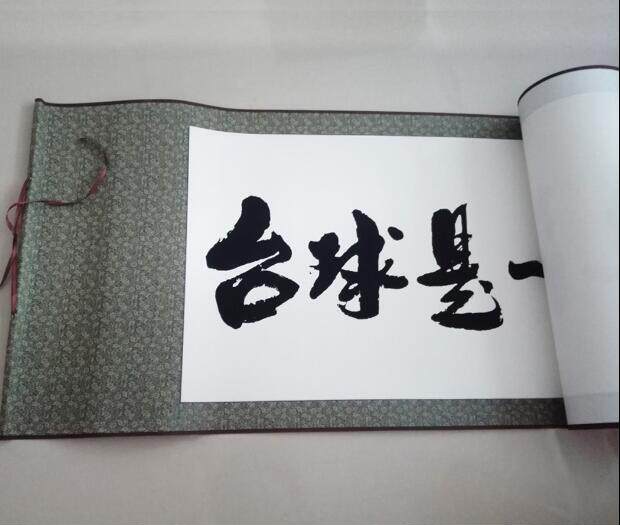 台球是一